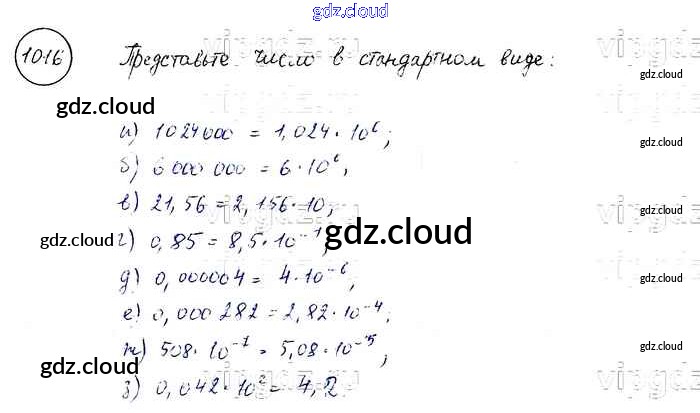 gdz.cloud
1016 Представьте число в стандартном виде:
gdz.cloud
gdz.cloud
gdz.cloud
а) 1024000 = 1,024·10⁶;
б) 6 000 000 = 6·10⁶,
в) 21,56 = 2,156·10;
gdz.cloud
г) 0,85 = 8,5·10⁻¹;
gdz.cloud
gdz.cloud
gdz.cloud
д) 0,000004 = 4·10⁻⁶;
gdz.cloud
е) 0,000282 = 2,82·10⁻⁴;
ж) 508·10⁻⁷ = 5,08·10⁻⁵;
gdz.cloud
gdz.cloud
з) 0,042·10² = 4,2